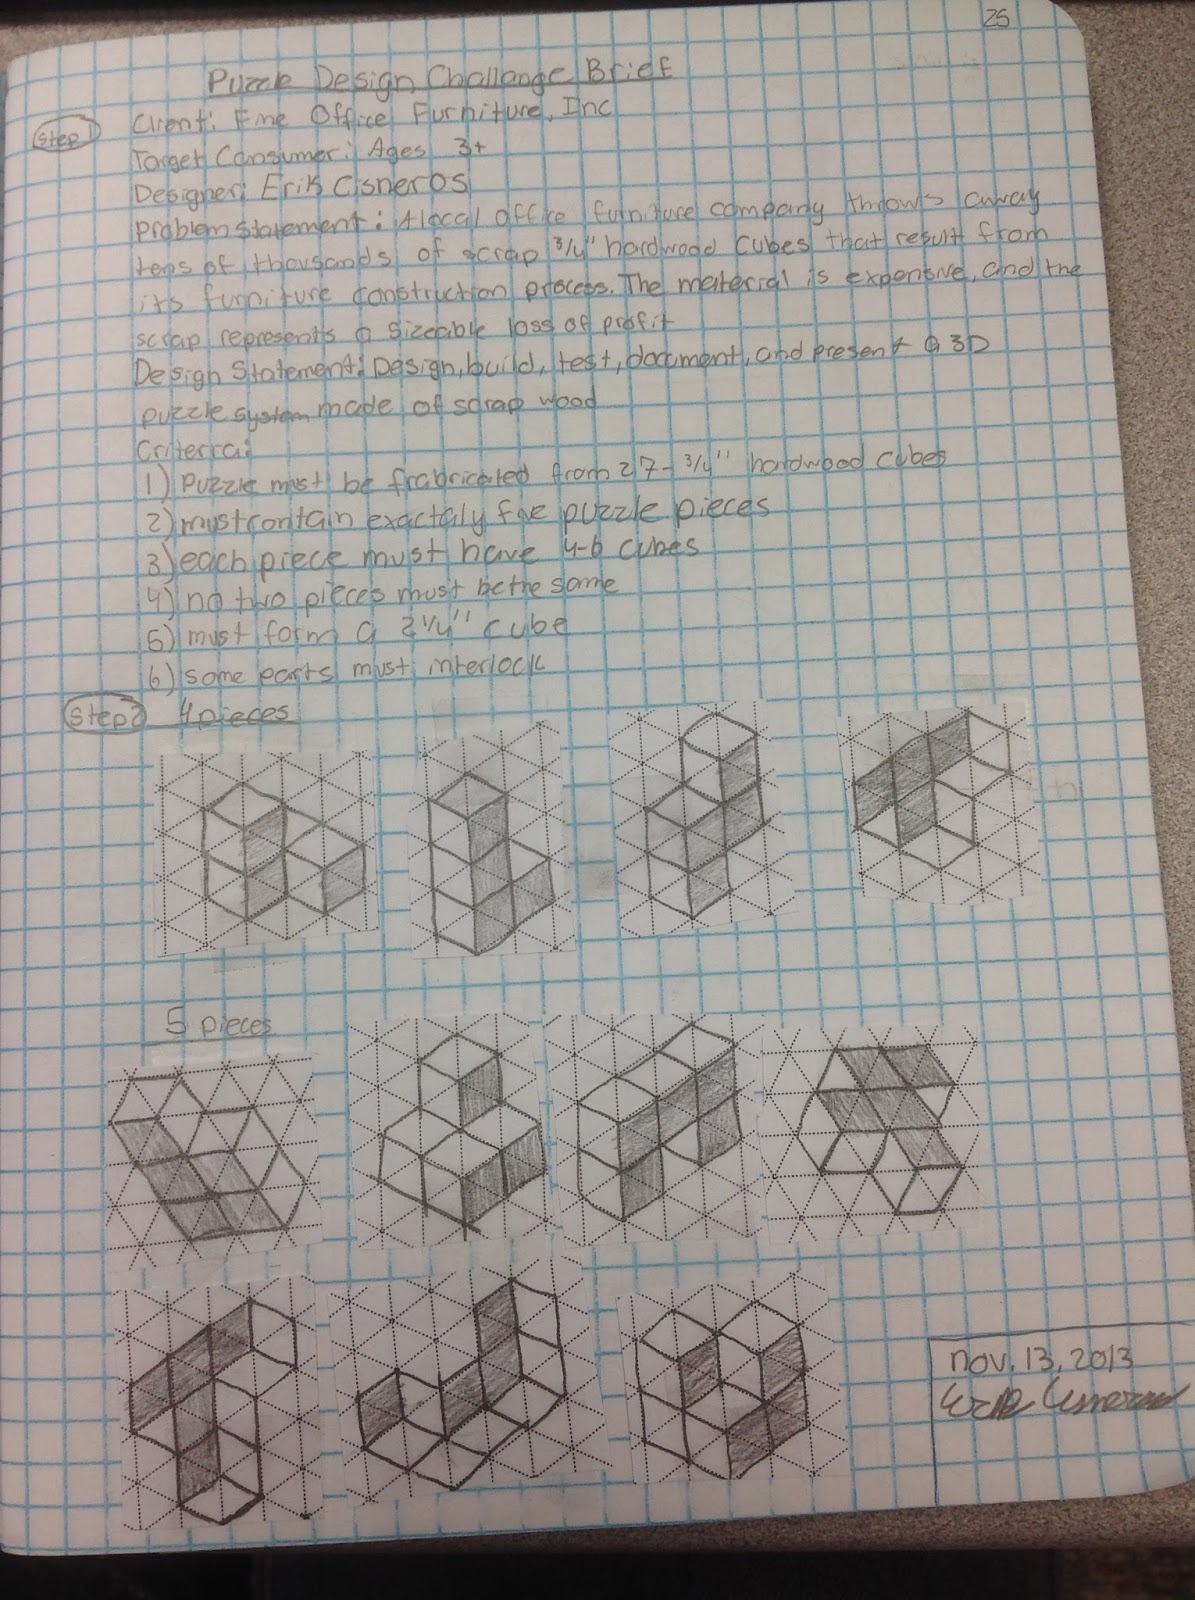 25
Puzzle Design Challange Brief
Step 1
Client: Fine Office Furniture, Inc
Target Consumer: Ages 3+
Designer: Erik Cisneros
Problem Statement: A local office furniture company throws away
tens of thousands of scrap 3/4" hardwood cubes that result from
its furniture construction process. The material is expensive, and the
scrap represents a sizeable loss of profit
Design Statement: Design, build, test, document, and present a 3D
puzzle system made of scrap wood
Criteria:
1) Puzzle must be frabricated from 27 - 3/4" hardwood cubes
2) must contain exactaly five puzzle pieces
3) each piece must have 4-6 cubes
4) no two pieces must be the same
5) must form a 2 1/4" cube
6) some parts must interlock
Step 2 4 pieces
5 pieces
Nov. 13, 2013